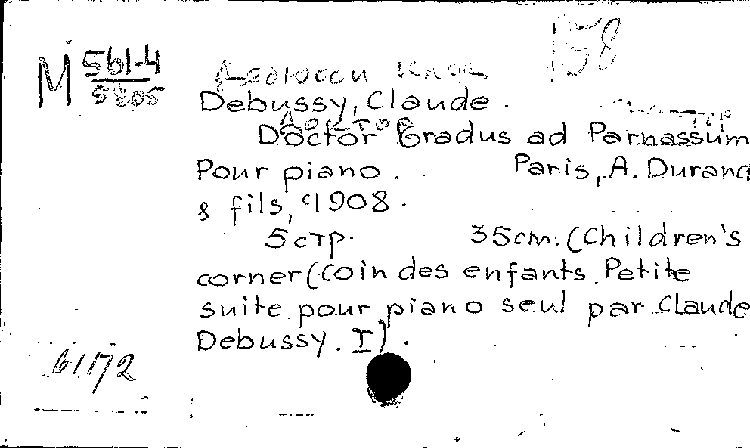 158
M 561-4
5805
Дебюсси Клод
Debussy, Claude.
Доктор
Doctor Gradus ad Parnassum
Pour piano. Paris, A. Durand
& fils, c1908.
5 стр. 35cm. (Children's
corner (Coin des enfants. Petite
suite pour piano seul par Claude
Debussy. I).
61172